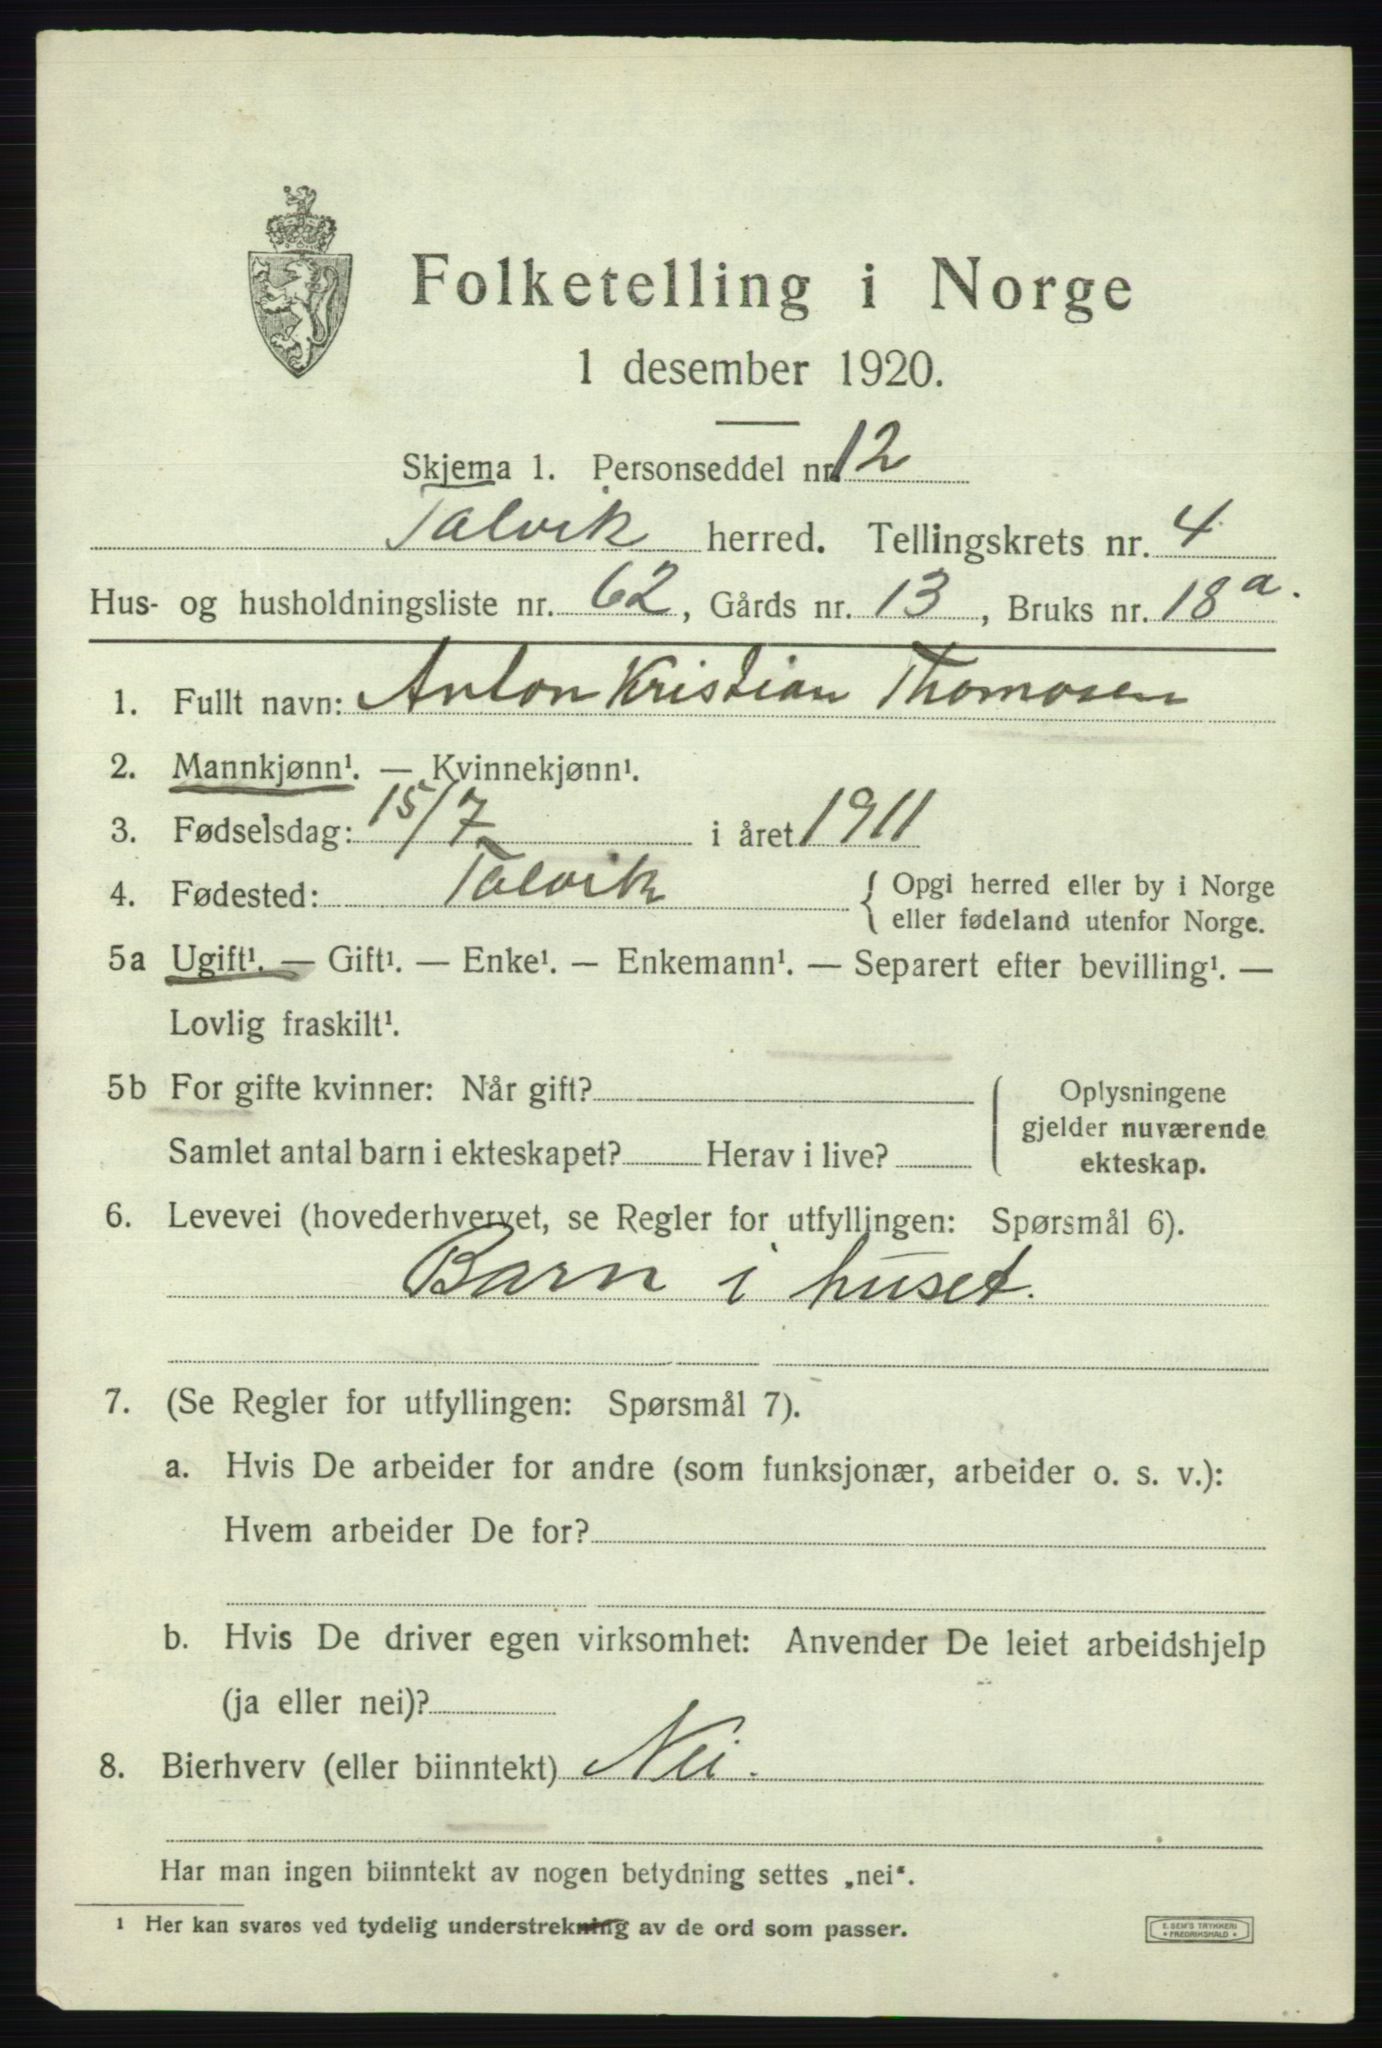 Folketelling i Norge
1 desember 1920.
Skjema 1. Personseddel nr. 12
Talvik herred. Tellingskrets nr. 4
Hus- og husholdningsliste nr. 62, Gårds nr. 13, Bruks nr. 18 a.
1. Fullt navn: Anton Kristian Thomasen
2. Mannkjønn¹. — Kvinnekjønn¹.
3. Fødselsdag: 15/7 i året 1911
4. Fødested: Talvik { Opgi herred eller by i Norge
eller fødeland utenfor Norge.
5a Ugift¹. — Gift¹. — Enke¹. — Enkemann¹. — Separert efter bevilling¹. —
Lovlig fraskilt¹.
5b For gifte kvinner: Når gift? Oplysningene
gjelder nuværende
Samlet antal barn i ekteskapet? Herav i live? ekteskap.
6. Levevei (hovederhvervet, se Regler for utfyllingen: Spørsmål 6).
Barn i huset.
7. (Se Regler for utfyllingen: Spørsmål 7).
a. Hvis De arbeider for andre (som funksjonær, arbeider o. s. v.):
Hvem arbeider De for?
b. Hvis De driver egen virksomhet: Anvender De leiet arbeidshjelp
(ja eller nei)?
8. Bierhverv (eller biinntekt) Nei.
Har man ingen biinntekt av nogen betydning settes „nei“.
¹ Her kan svares ved tydelig understrekning av de ord som passer.
E. SEM'S TRYKKERI
* FREDRIKSHALD *